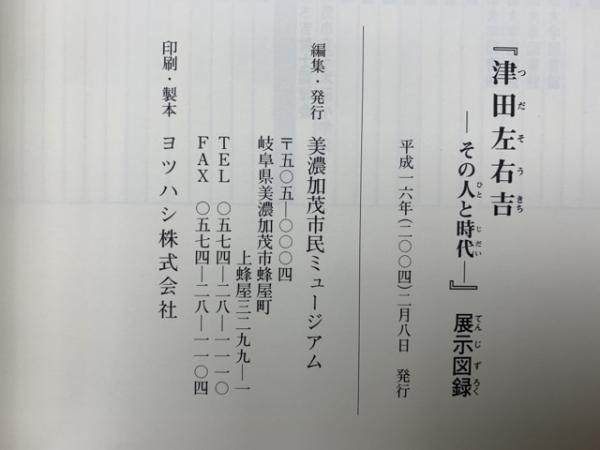 『津田左右吉
つだそうきち
―その人と時代―』展示図録
ひと じだい てんじずろく
平成一六年(二〇〇四)二月八日 発行
編集・発行 美濃加茂市民ミュージアム
〒五〇五―〇〇〇四
岐阜県美濃加茂市蜂屋町
上蜂屋三二九九―一
TEL 〇五七四―二八―一一一〇
FAX 〇五七四―二八―一一〇四
印刷・製本 ヨツハシ株式会社